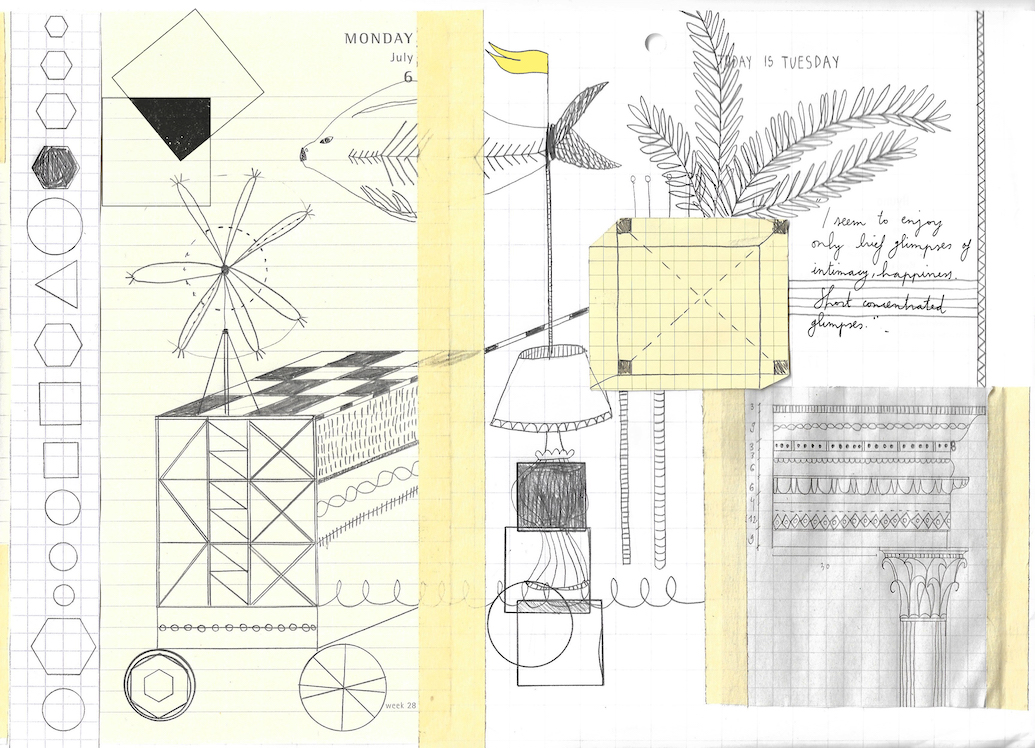 MONDAY
July
6
TODAY IS TUESDAY
"I seem to enjoy
only brief glimpses of
intimacy, happiness.
Short concentrated
glimpses."
3
9
3
3
6
6
4
12
9
30
week 28